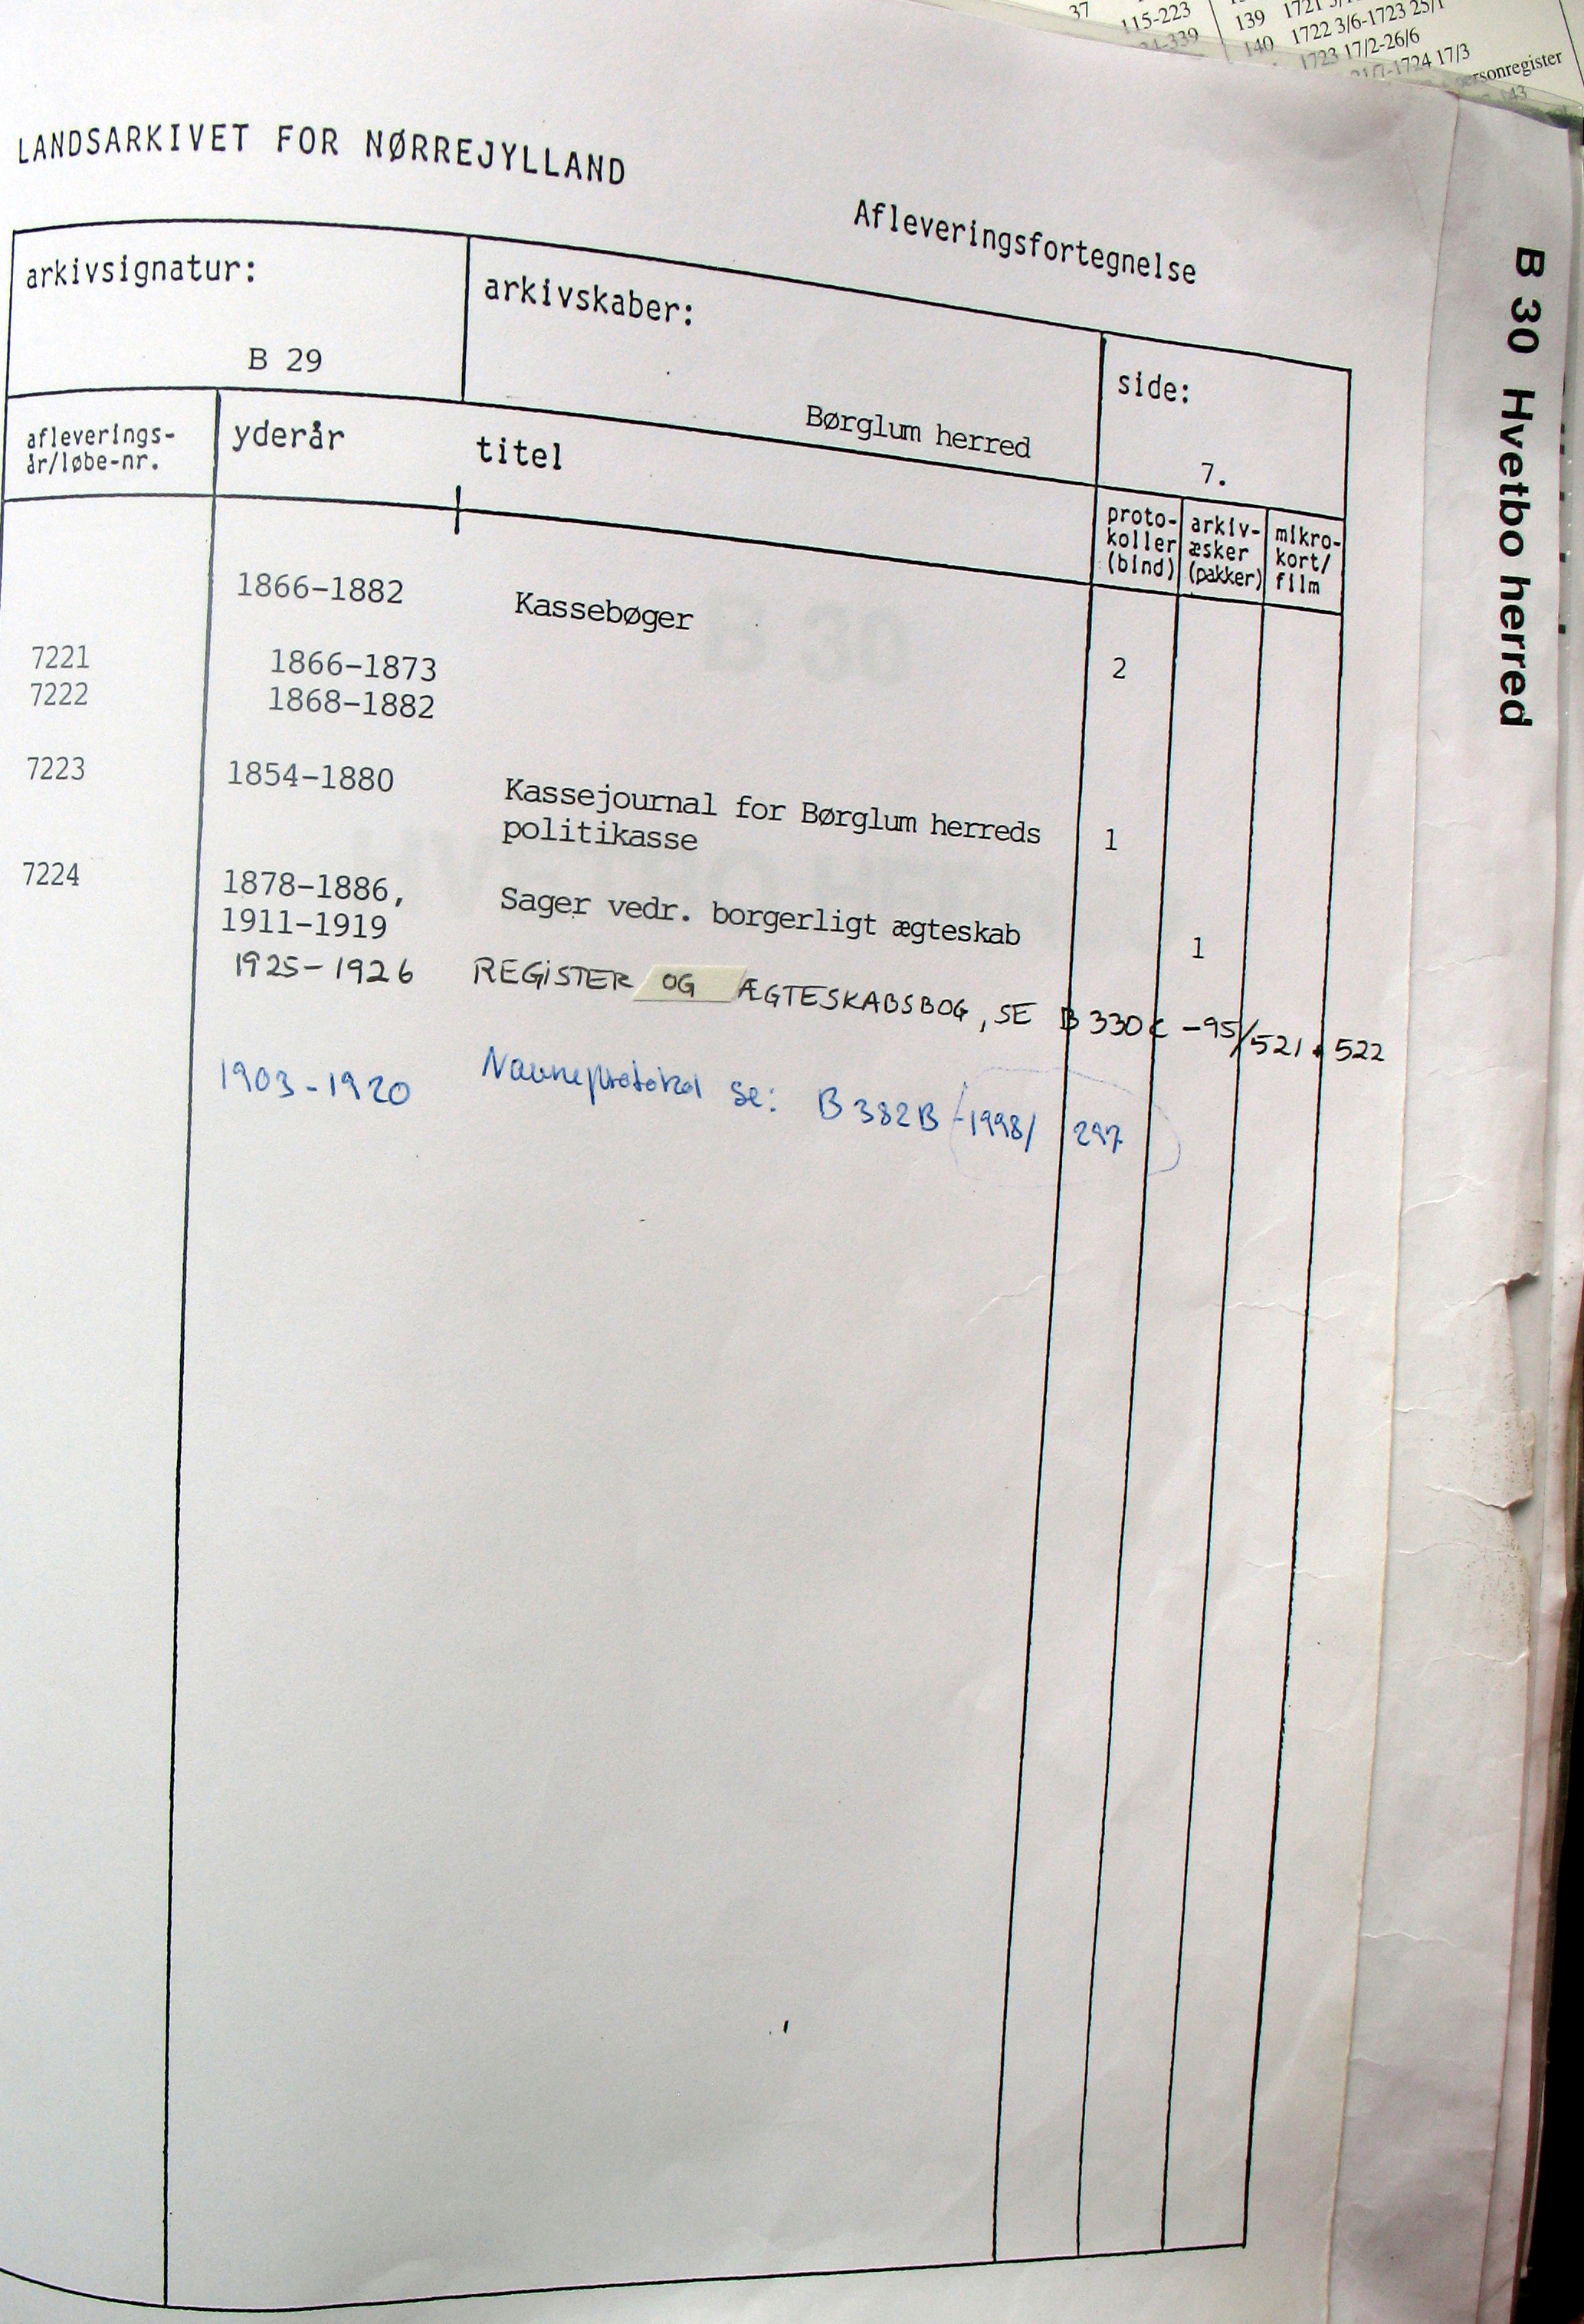 37
115-223
-339
139
140 1722 3/6-1723 25/1
1723 17/2-26/6
-1724 17/3
LANDSARKIVET FOR NØRREJYLLAND
Afleveringsfortegnelse
arkivsignatur:
B 29
arkivskaber:
Børglum herred
side:
7.
afleverings-
år/løbe-nr.
yderår
titel
proto-
koller
(bind)
arkiv-
æsker
(pakker)
mikro-
kort/
film
1866-1882 Kassebøger
7221 1866-1873 2
7222 1868-1882
7223 1854-1880 Kassejournal for Børglum herreds
politikasse 1
7224 1878-1886, Sager vedr. borgerligt ægteskab
1911-1919 1
1925-1926 REGISTER OG ÆGTESKABSBOG, SE B 330 C -95/521 + 522
1903-1920 Navneprotokol se: B 382B -1998/ 297
B 30 Hvetbo herred
B 30
HVETBO HERRED